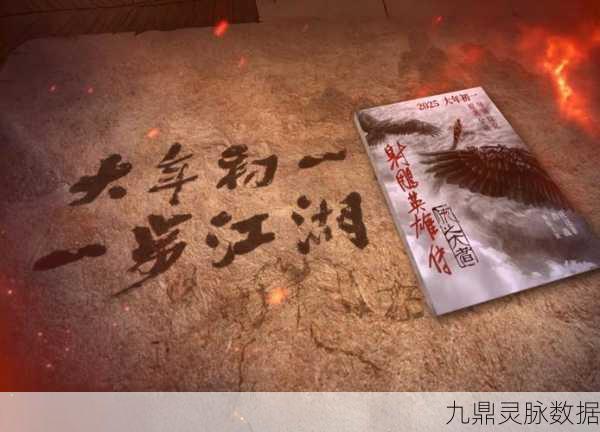 大年初一
一步江湖
2025 大年初一
射雕英雄传
侠之大者
九鼎灵脉数据